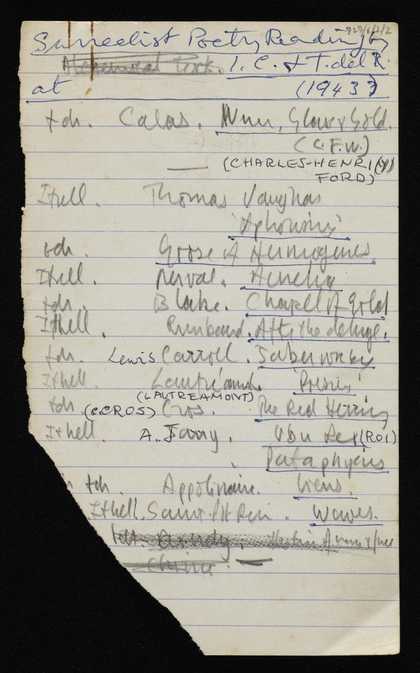 929/6/2/2
Surrealist Poetry Reading by
I. C. & T. del R.
at (1943)
tdr. Calas. Wine, Glove & Gold.
(C.F.W.)
(CHARLES-HENRI
FORD)
Ithell. Thomas Vaughan
'Aphorisms'
tdr. Goose of Hermogenes.
Ithell. Nerval. Artemis
tdr. Blake. Chapel of Gold
Ithell. Rimbaud. After the deluge.
tdr. Lewis Carroll. Jaberwocky
Ithell. Lautréamont. 'Poesies'
(LAUTREAMONT)
tdr. (C CROS) Cros. The Red Herring
Ithell. A. Jarry. Ubu Rex (ROI)
Pataphysics
tdr. Appolinaire. Liens.
Ithell. Saint Pol Roux. Waves.